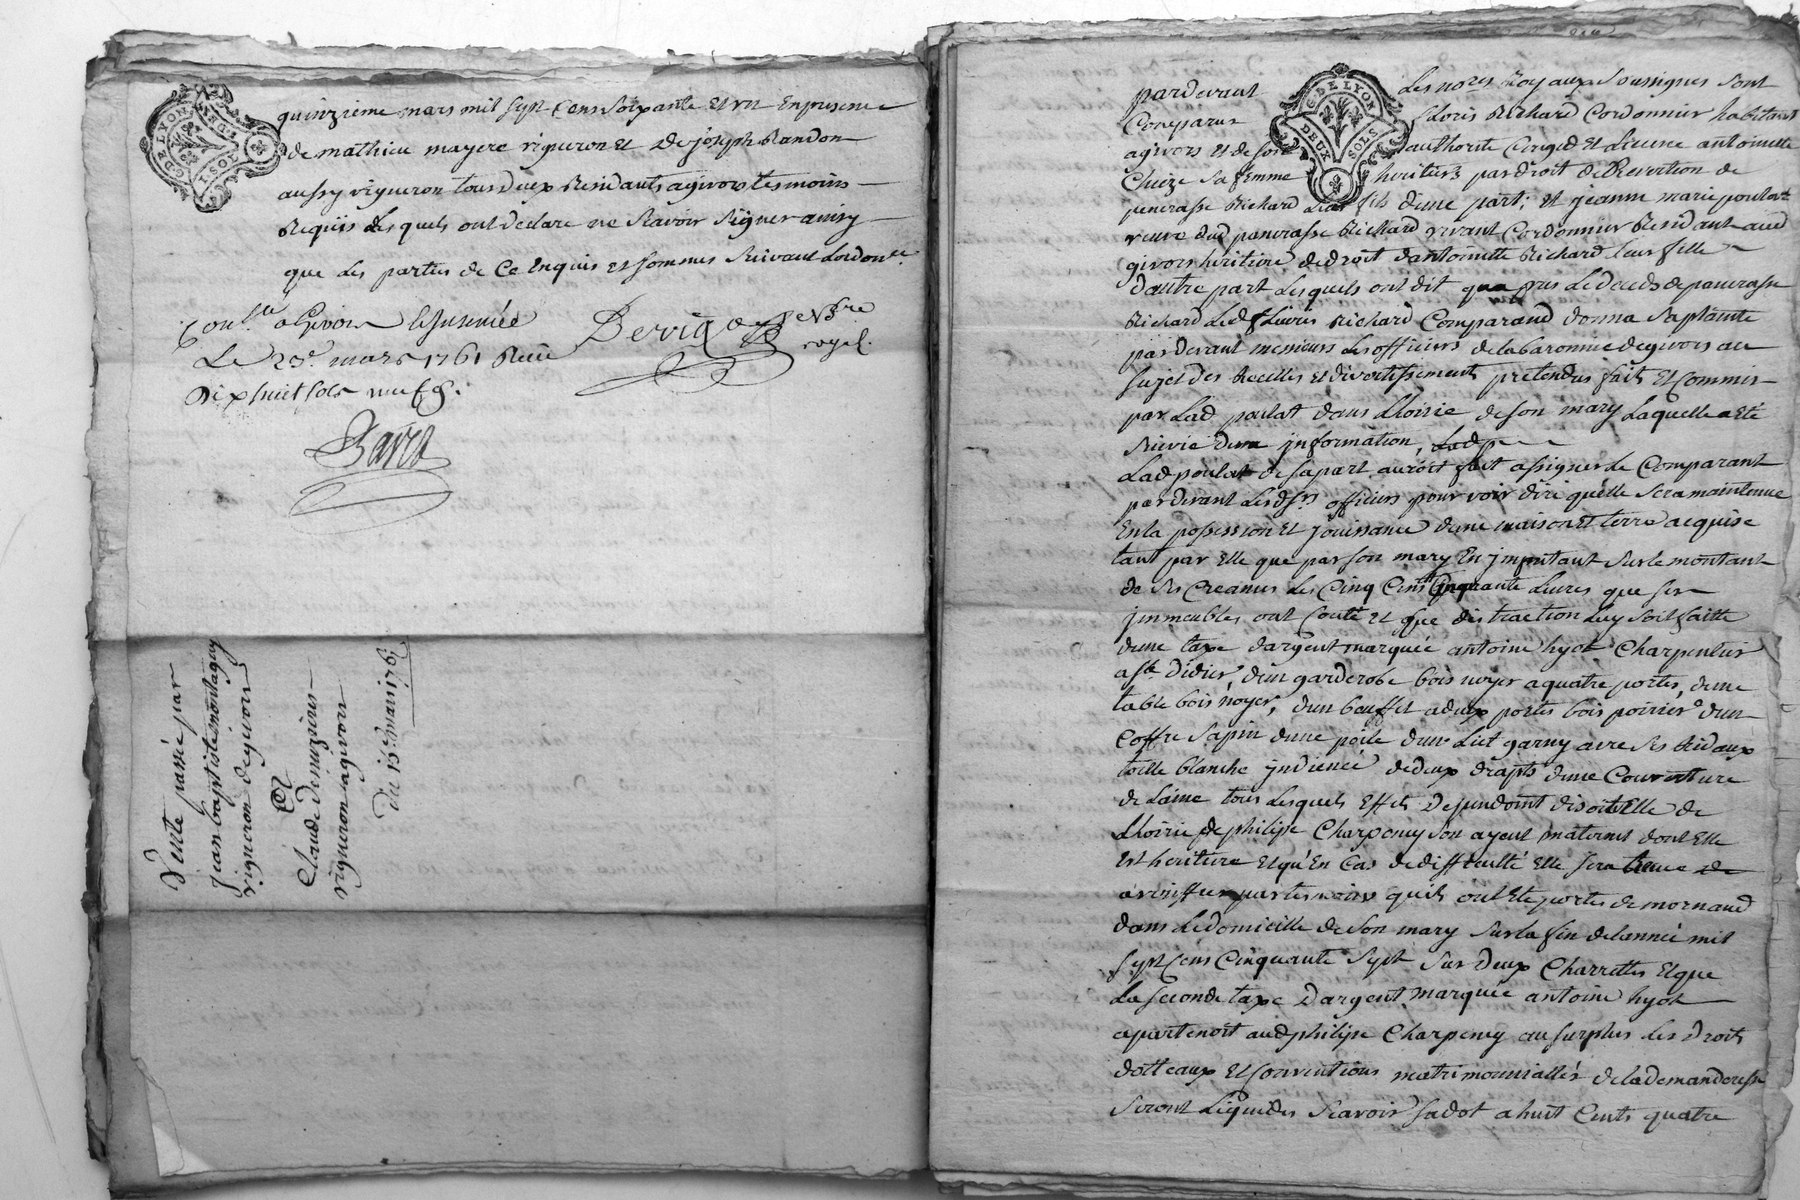 G. DE LYON
DEUX SOLS
quinzieme mars mil sept cens soixante et un En presence
de mathieu mayere vigneron et de joseph Blandon
aussy vigneron tous deux Residants a givors tesmoins
Requis Lesquels ont declaré ne scavoir signer ainsy
que les parties de Ce Enquis et sommes suivant Lordonce
Conllé a Givors
Le 23e mars 1761 Receu
Dix huit sols neuf d.
royal.
Vente passée par
Jean baptiste montagny
vigneron de givors
A
Claude
vigneron a givors
du 15e mars 1761
G. DE LYON
DEUX SOLS
pardevant Les nores Royaux soussignes sont
Comparus Richard Cordonnier habitant
a givors et de son authorité Congé et Licence antoinette
Chieze sa femme heritiers par droit de Revertion de
pancrasse Richard Leur fils d'une part; et jeanne marie poulat
veuve dud pancrasse Richard vivant Cordonnier Residant aud
givors heritiere de droit dantoinette Richard Leur fille
dautre part Lesquels ont dit que Le deceds de pancrasse
Richard Led Richard Comparand donna sa plainte
pardevant messieurs Les officiers de la baronnie de givors au
sujet des Recelles et divertissements pretendus faits et Commis
par Lad poulat dans Lhoirie de son mary Laquelle a eté
suivie d'une jnformation,
Lad poulat de sa part auroit fait assigner Le Comparant
pardevant Lesd srs officiers pour voir dire quelle sera maintenue
En la possession et jouissance dune maison et terre acquise
tant par Elle que par son mary En jmputant sur le montant
de ses Creances Les Cinq Cens Cinquante Livres que ses
jmmeubles ont Couté et que distraction Luy soit faitte
dune taxe dargent marquée antoine hyot Charpentier
a st Didier, dun garderobe bois noyer a quatre portes, dune
table bois noyer, dun buffet a deux portes bois poirier dun
Coffre sapin dune poile dun Lict garny avec ses Rideaux
toille blanche jndienée de deux drapts dune Couverture
de Laine tous Lesquels Effets Dependoint disoit Elle de
Lhoirie de philipe Charpenay son ayeul maternel dont Elle
est heritiere et qu'En Cas de difficulté elle sera tenue de
par tesmoins quils ont Eté portés de mornand
dans Le domicille de son mary sur la fin de lannée mil
sept Cens Cinquante sept sur deux Charrettes et que
La seconde taxe Dargent marquée antoine hyot
apartenoit aud philipe Charpenay au surplus Les Droits
dotteaux et Conventions matrimonialles de la demanderesse
seront Liquidés scavoir sa dot a huit Cents quatre